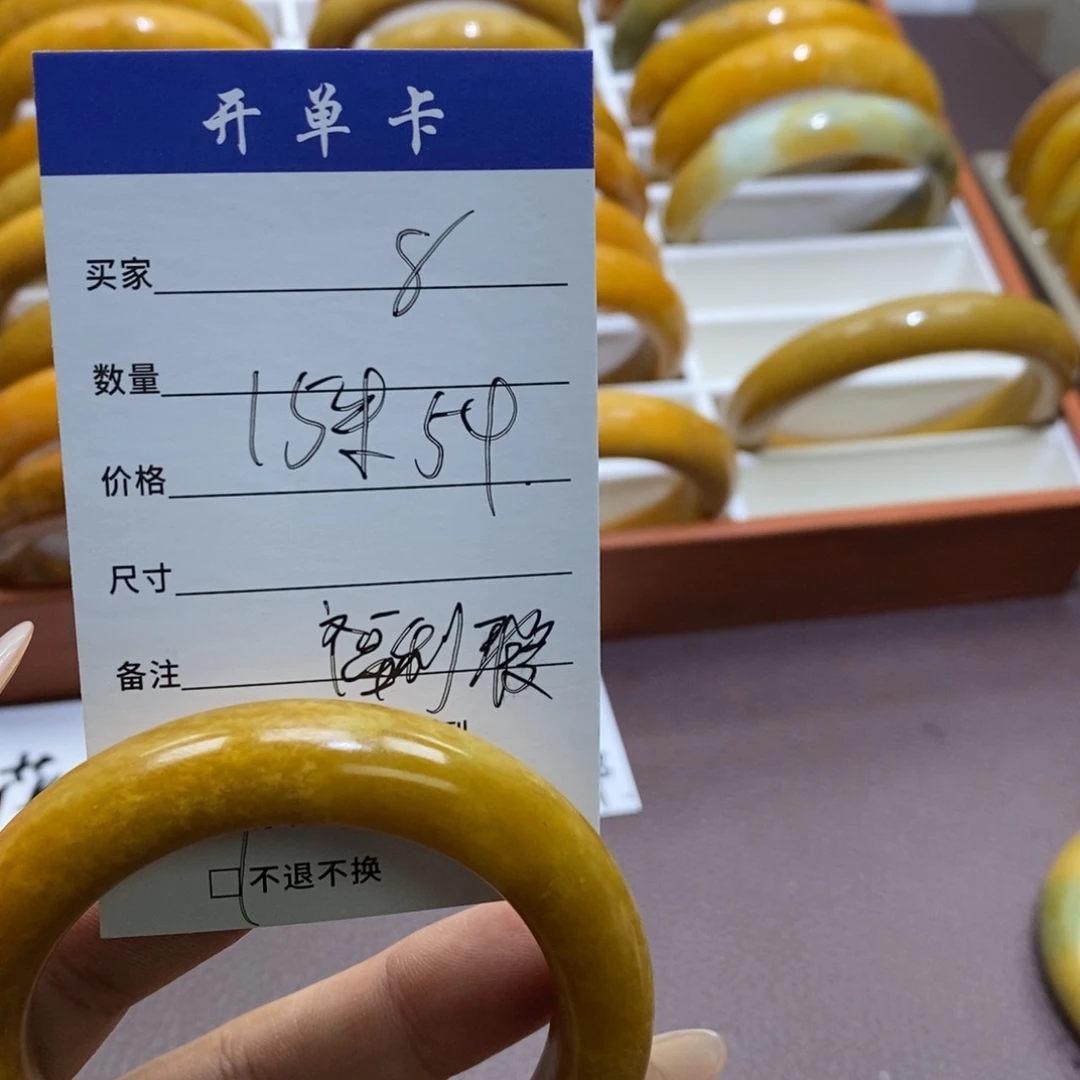 开单卡
买家 8
数量
15来 54
价格
尺寸
备注 福利 瑕
不退不换